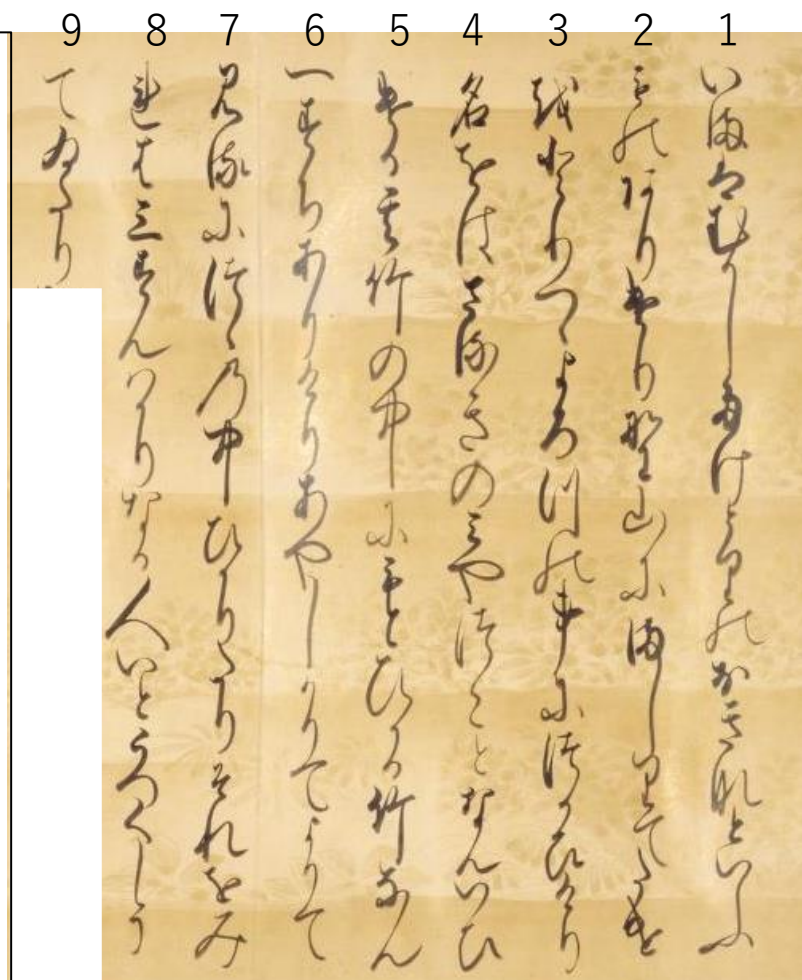 1 いまはむかしたけとりのおきなといふ
2 ものありけり野山にましりてたけ
3 をとりつゝよろつの事につかひけり
4 名をはさぬきのみやつことなんいひ
5 ける其竹の中にもとひかる竹なん
6 一すちありけりあやしかりてよりて
7 見るにつゝの中ひかりたりそれをみ
8 れは三すんはかりなる人いとうつくしう
9 てゐたり